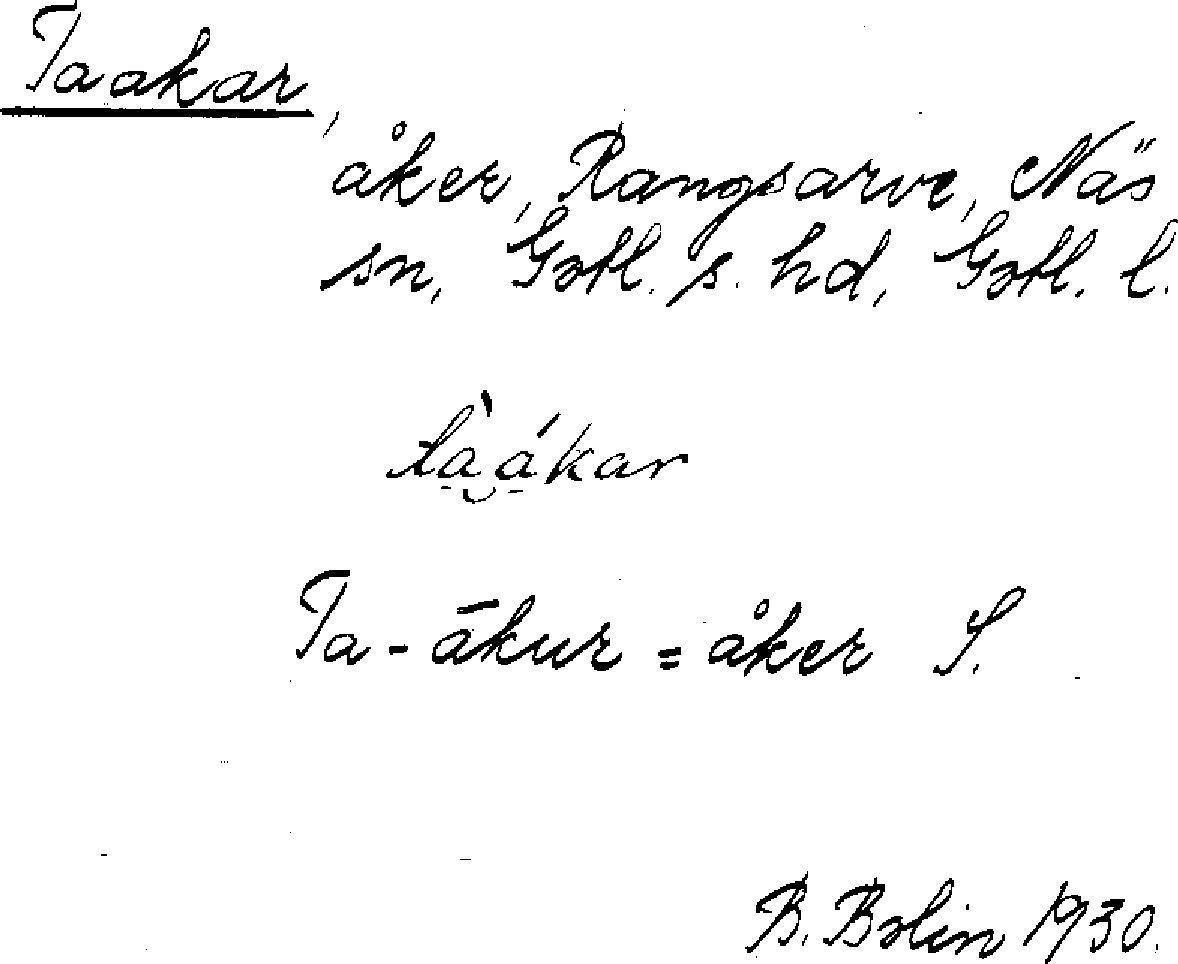 Taakar,
åker, Rangsarve, Näs
sn, Gotl. s. hd, Gotl. l.
tàákar
Ta-ākur = åker S.
B. Bolin 1930.